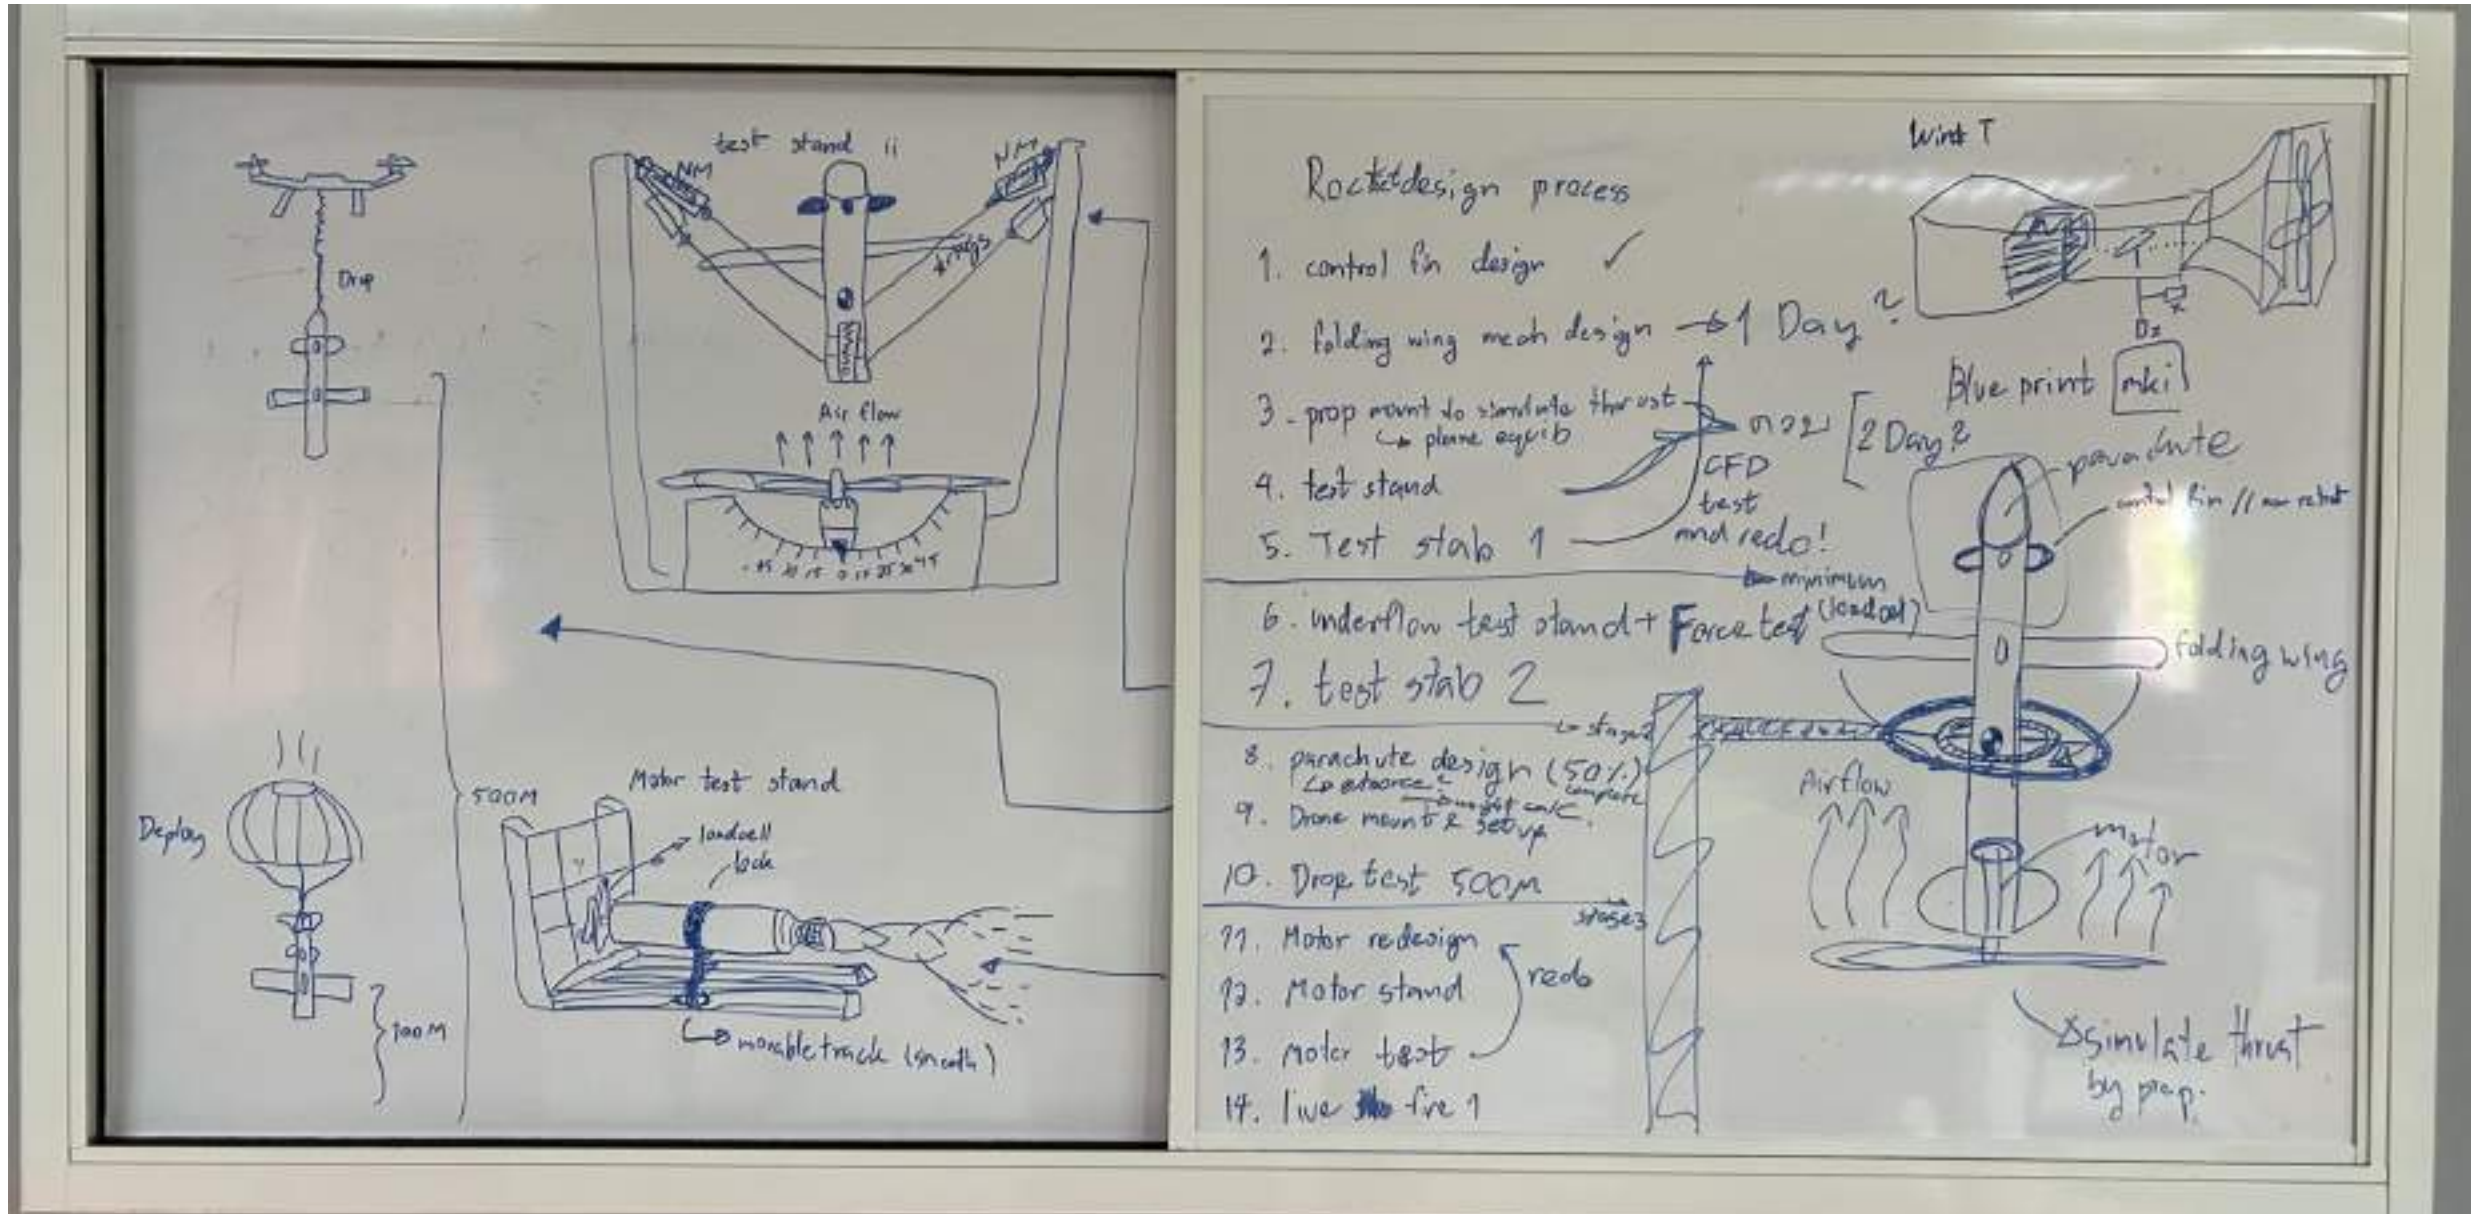 test stand ii
NM
NM
Drop
Air flow
45 30 15 0 15 25 30 45
500M
Deploy
100M
Motor test stand
loadcell
lock
movable track (smooth)
Rocket design process
1. control fin design ✓
2. folding wing mech design → 1 Day?
3. prop mount to simulate thrust
↳ plane equib
2 Day?
4. test stand
CFD
test
and redo!
5. Test stab 1
minimum
6. underflow test stand + Force test (loadcel)
7. test stab 2
8. parachute design (50%)
complete
9. Drone mount & set up
10. Drop test 500M
stage3
11. Motor redesign
redo
12. Motor stand
13. motor test
14. live fire 1
Wind T
Blue print mki
parachute
control fin //
folding wing
Airflow
motor
simulate thrust
by prop.